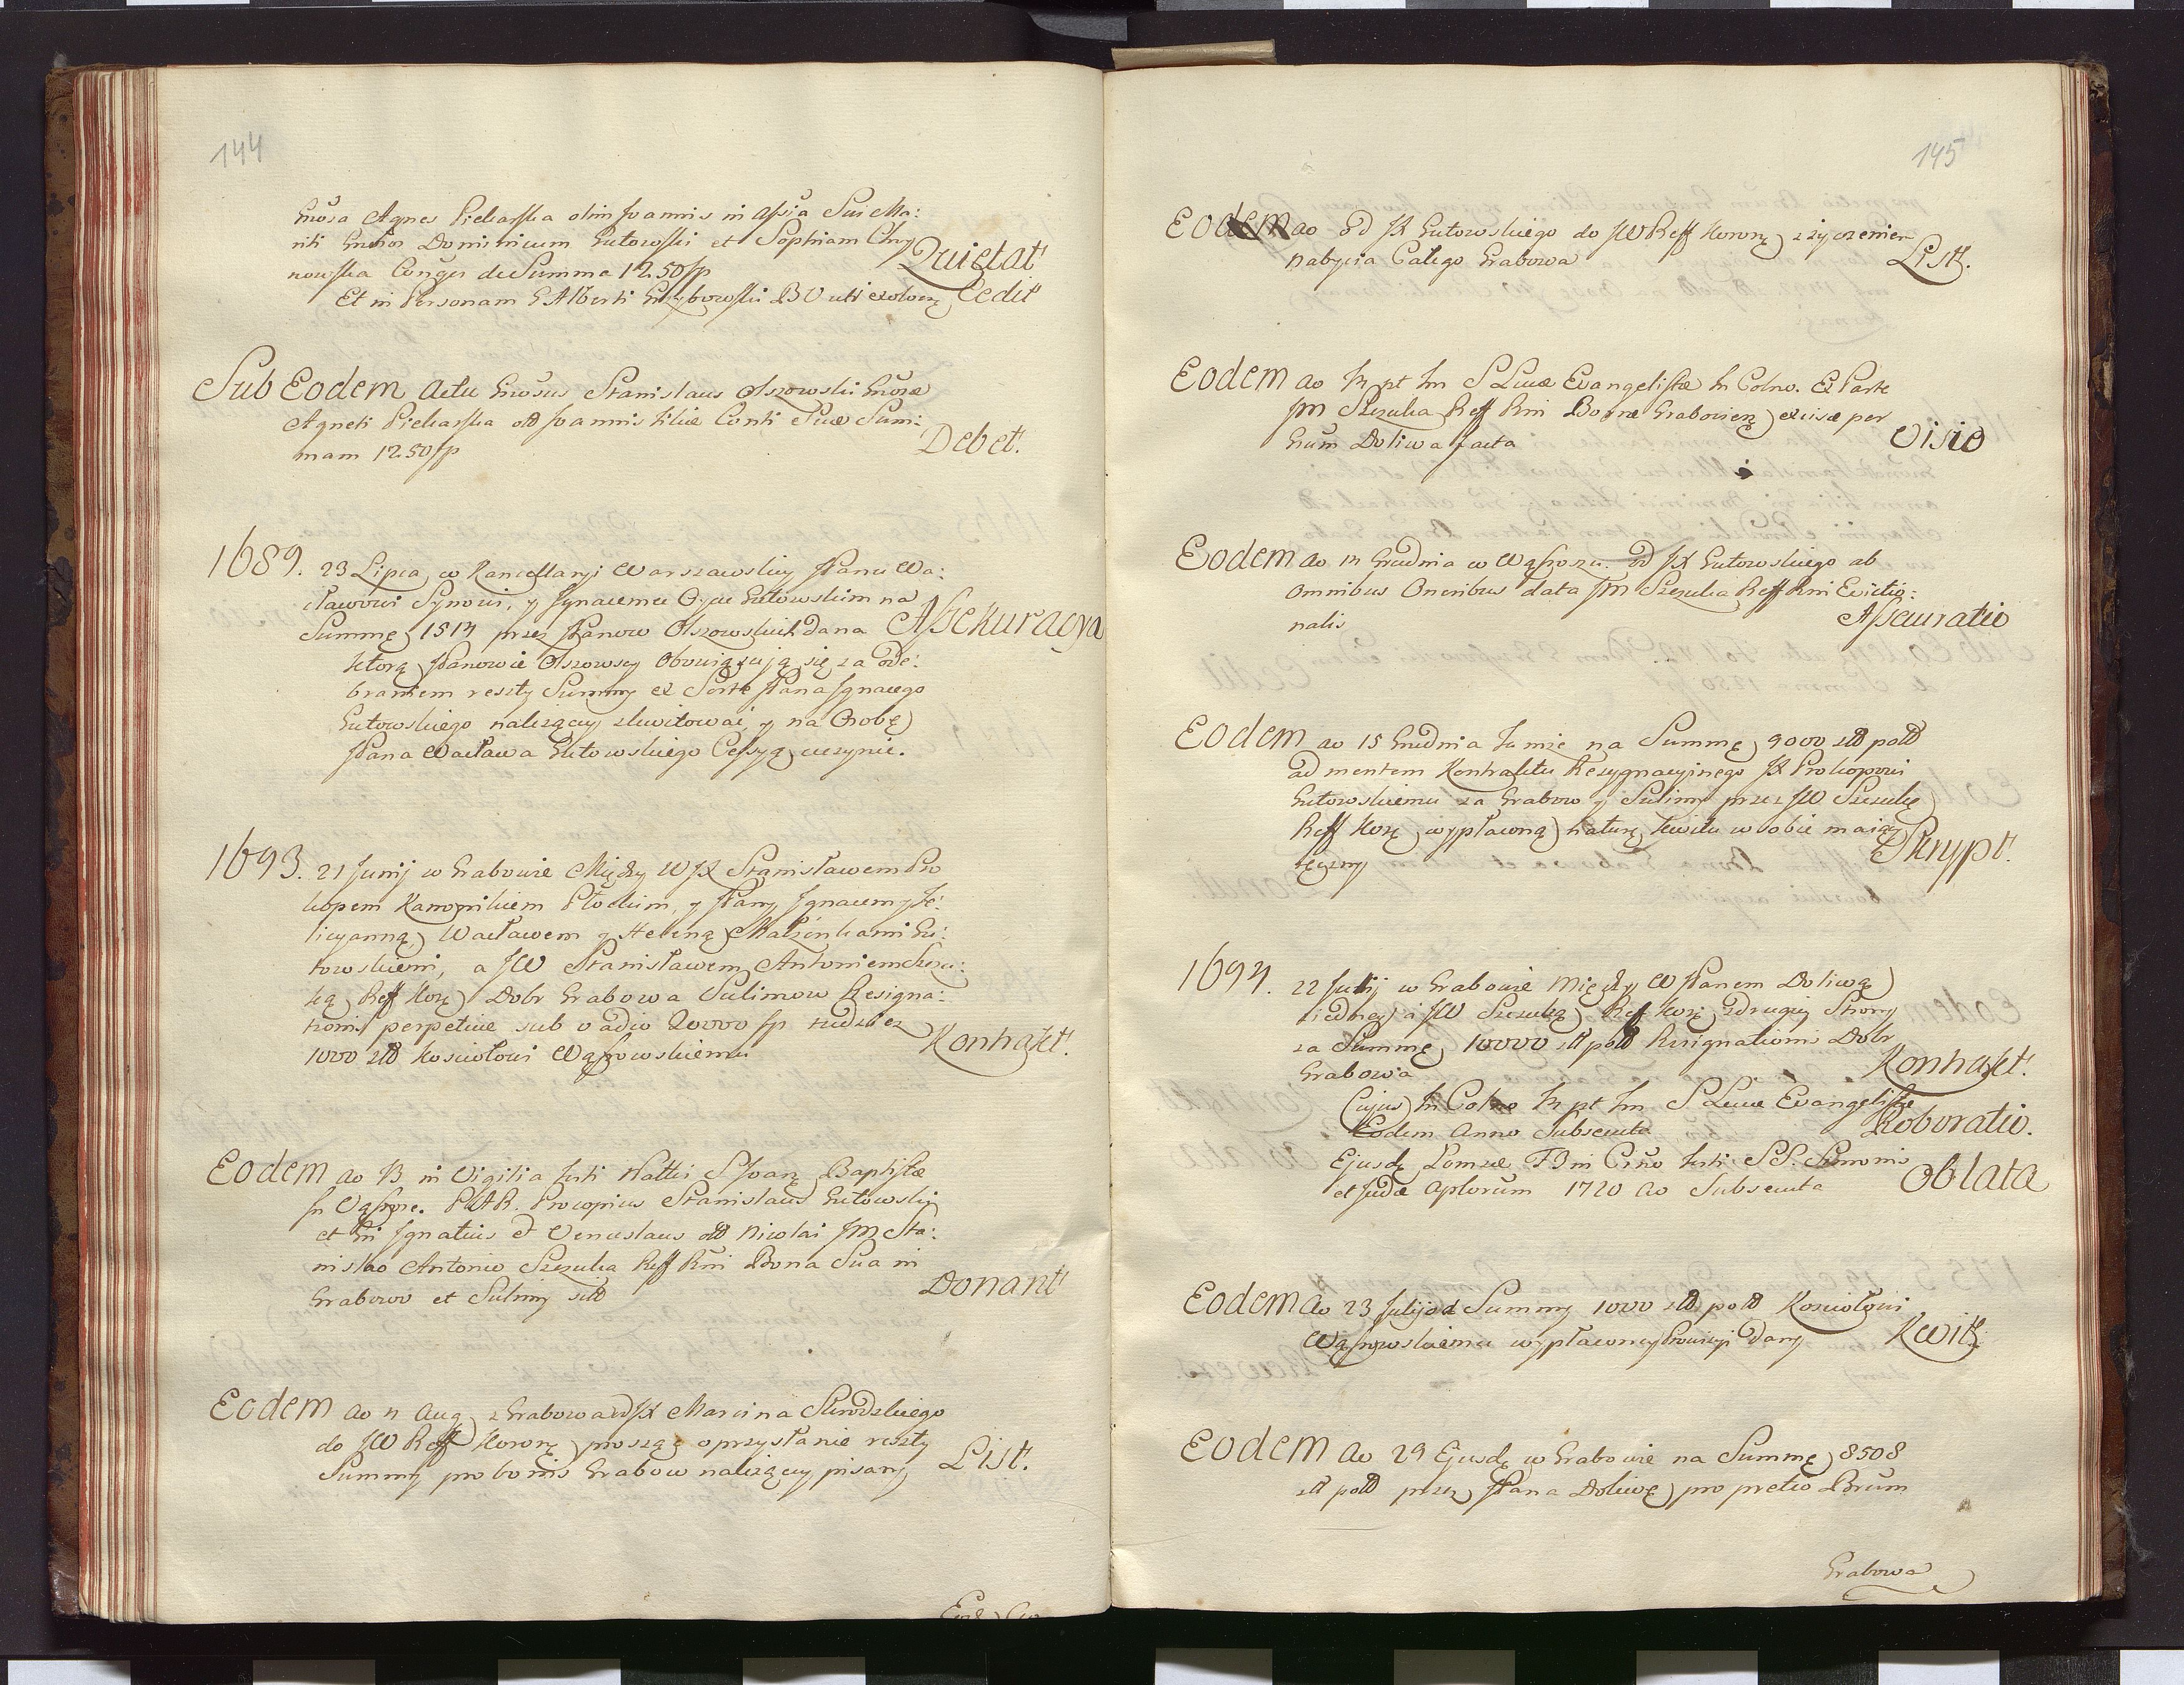 144
Gnosa Agnes Piekarska olim Joannis in Assia Sui Ma:
riti Gnosos Dominicum Gutowski et Sophiam Chy
nowska Conges de Summa 1250 fp Quietat
Et in Personam G Alberti Grzybowski BV uti exolvens Cedit
Sub Eodem Actu Gnosus Stanislaus Olszowski Gnosæ
Agneti Piekarska old Joannis filiæ Conti Suæ Sum:
mam 1250 fp Debet.
1689. 23 Lipca, w Kancellaryi Warszawskiey JPanu Wa:
cławowi Synowi, y Ignacemu Oycu Gutowskim na
Summę 1514 przez JPanow Olszowskich dana Assekuracya
którą JPanowie Olszowscy obowiązują się za ode:
braniem reszty Summy ex Sorte JPana Ignacego
Gutowskiego należącey zkwitować, y na Osobę
JPana Wacława Gutowskiego Cessyą uczynić.
1693. 21 Junij w Grabowie Między WJX Stanisławem Pro
kopem Kanonikiem Płockim, y JPany Ignacem y Fe:
licyanną, Wacławem y Heleną Małżonkami Gu:
towskiemi, a JW Stanisławem Antoniem Szczu:
ką Reff Korę Dobr Grabowa Sulimow Resigna:
tionis perpetuæ sub vadio 20000 fp tudziez
1000 złł Kosciołowi Wąsowskiemu Kontrakt.
Eodem ao 13 in Vigilia festi Natti S Joanę Baptistæ
in Wąsosze. PAR. Procopius Stanislaus Gutowski
et Gni Ignatius et Venceslaus old Nicolai JM Sta:
nislao Antonio Szczuka Reff Rni Bona Sua in
Grabowo et Sulimy sitt Donant
Eodem ao 4 Aug z Grabowa od JX Marcina Skrodzkiego
do JW Reff Koronę proszącę o przysłanie reszty
Summy pro bonis Grabow należącey pisany List.
145
Eodem ao od JX Gutowskiego do JW Reff Koronę z życzeniem
nabycia Całego Grabowa List.
Eodem ao 14 pt fm S Lucæ Evangelistæ in Colno. Ex Parte
JM Szczuka Reff Rni Bonæ Grabowienę excisæ per
Gnum Doliwa facta Visio
Eodem ao 14 Grudnia w Wąsoszu od JX Gutowskiego ab
omnibus Oneribus data JM Szczuka Reff Rni Evictio:
nalis Assecuratio
Eodem ao 15 Grudnia tamże na Summę 9000 złł poll
ad mentem Kontraktu Rezygnacyinego JX Prokopowi
Gutowskiemu za Grabow y Sulimy przez JW Szczukę
Reff Korę wypłaconą naturę kwitu w sobie maiący
ręczny Skrypt.
1694. 22 Julij w Grabowie Między W JPanem Doliwą
z iedney a JW Szczuką Reff Korę z drugiey Strony
za Summę 10000 złł poll Resignationis Dobr
Grabowa Kontrakt.
Cujus in Colno 14 pt fm S Lucæ Evangelistæ
Eodem Anno Subsecuta Roboratio.
Ejusdę Lomzæ FB in Crño festi SS. Simonis
et Judæ Aplorum 1720 ao Subsecuta Oblata
Eodem ao 23 Julij od Summy 1000 złł poll Kosciołowi
Wąsowskiemu wypłaconey Prowizyi dany Kwit.
Eodem ao 29 Ejusdę w Grabowie na Summę 8508
złł poll przez JPana Doliwę pro pretio Brum
Grabowa